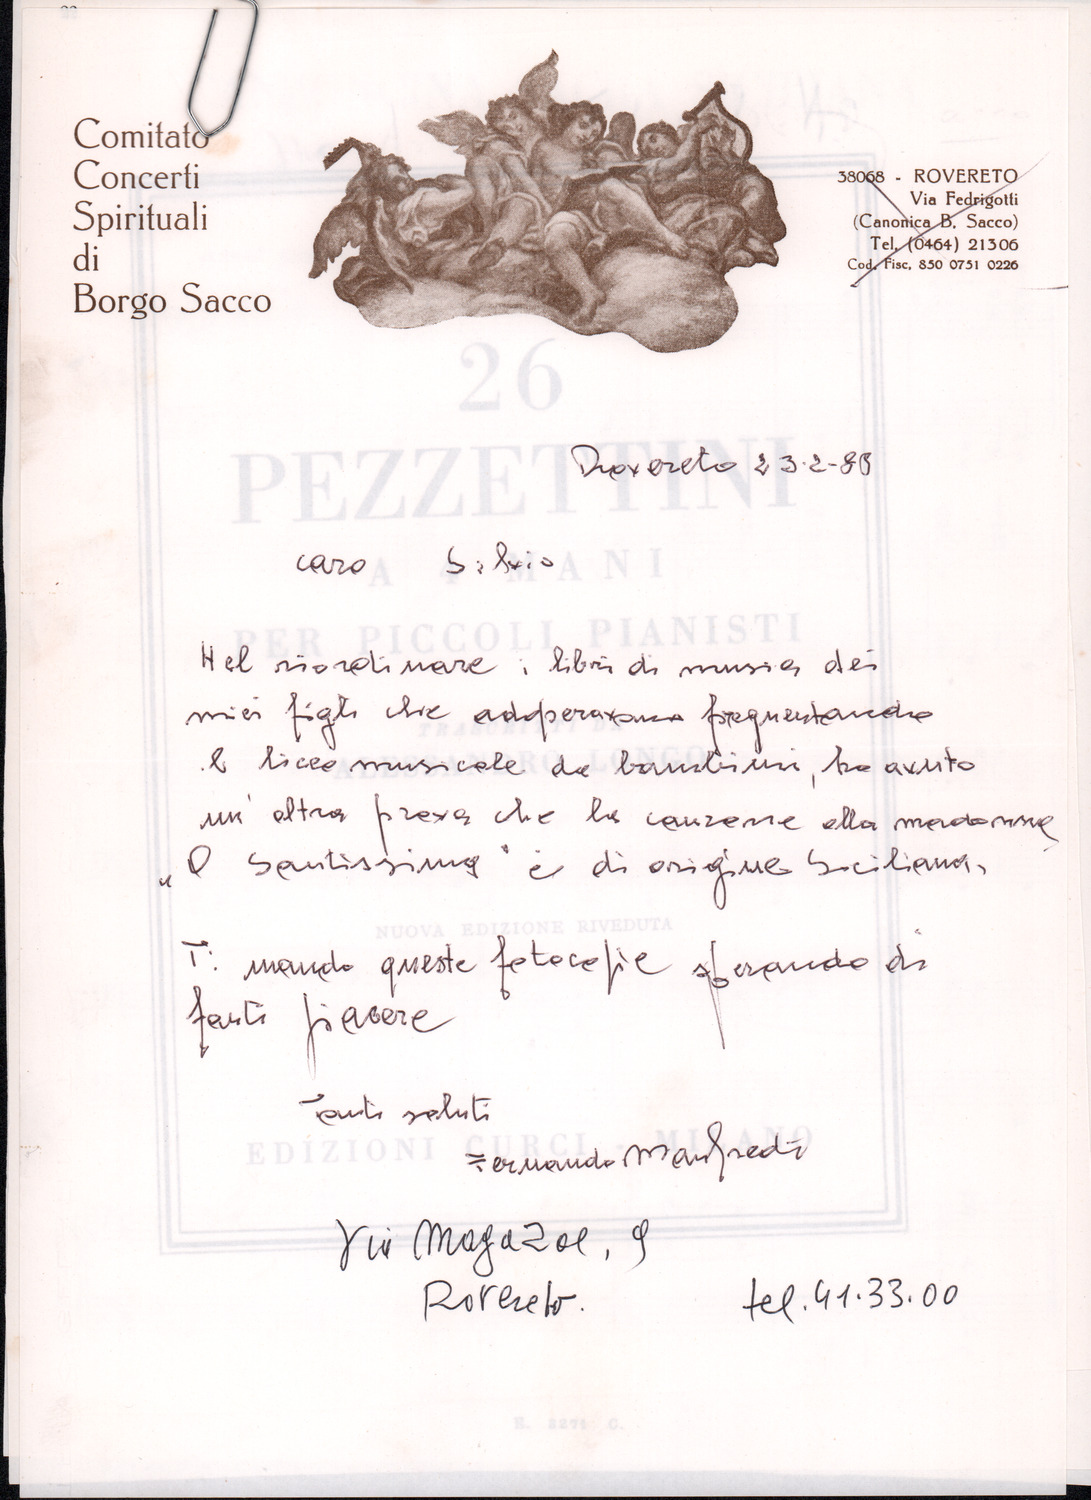 Comitato
Concerti
Spirituali
di
Borgo Sacco
38068 - ROVERETO
Via Fedrigotti
(Canonica B. Sacco)
Tel. (0464) 21306
Cod. Fisc. 850 0751 0226
26
PEZZETTINI
A 4 MANI
PER PICCOLI PIANISTI
TRASCRITTI DA
ALESSANDRO LONGO
NUOVA EDIZIONE RIVEDUTA
EDIZIONI CURCI - MILANO
E. 2271 C.
Rovereto 23-2-
caro Silvio
Nel riordinare i libri di musica dei
miei figli che adoperavano frequentando
il liceo musicale da bambini, ho avuto
un'altra prova che la canzone alla madonna
"O Santissima" è di origine Siciliana.
Ti mando queste fotocopie sperando di
farti piacere
Tanti saluti
Fernando Manfredi
Via Magazol, 9
Rovereto. tel. 41.33.00